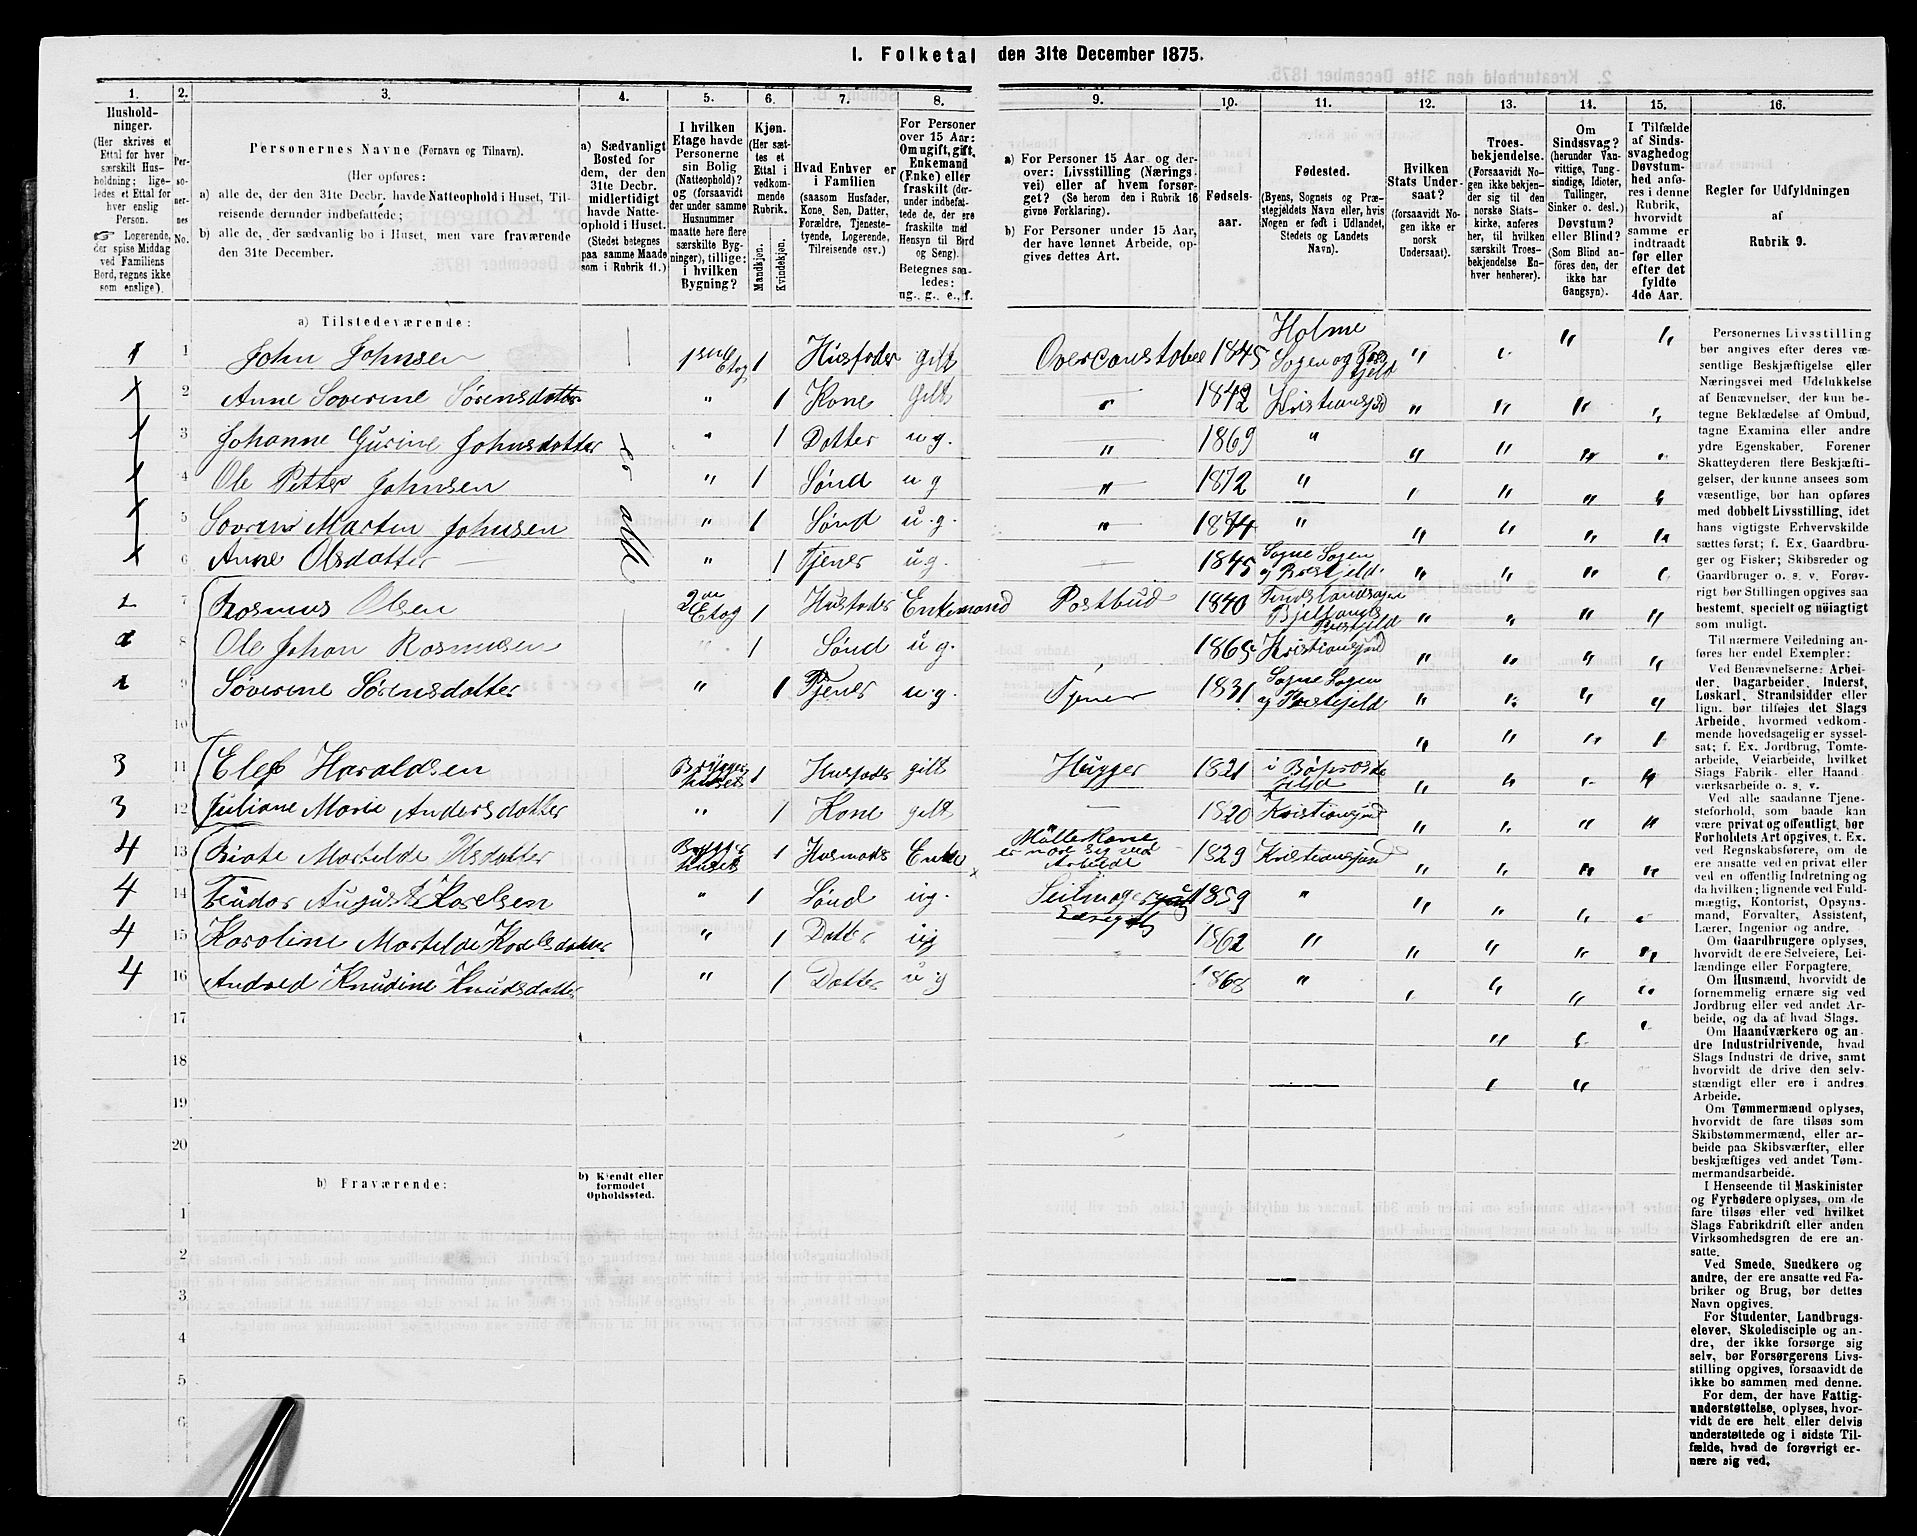 1. Folketal den 31te December 1875.
1. 2. 3. 4. 5. 6. 7. 8. 9. 10. 11. 12. 13. 14. 15. 16.
Husholdninger.
(Her skrives et
Ettal for hver
særskilt Husholdning;
ligeledes et Ettal for
hver enslig
Person.
Logerende,
der spise Middag
ved Familiens
Bord, regnes ikke
som enslige).
Personernes No.
Personernes Navne (Fornavn og Tilnavn).
(Her opføres:
a) alle de, der den 31te Decbr. havde Natteophold i Huset, Tilreisende derunder indbefattede;
b) alle de, der sædvanlig bo i Huset, men vare fraværende
den 31te December.
a) Sædvanligt
Bosted for
dem, der den
31te Decbr.
midlertidigt
havde Natteophold i Huset.
(Stedet betegnes
paa samme Maade
som i Rubrik 11.)
I hvilken
Etage havde
Personerne
sin Bolig
(Natteophold)?
og (forsaavidt
der under samme
Husnummer
maatte høre flere
særskilte Bygninger), tillige:
i hvilken
Bygning?
Kjøn.
(Her sættes et
Ettal i
vedkommende
Rubrik.
Mandkjøn.
Kvindekjøn.
Hvad Enhver er
i Familien
(saasom Husfader,
Kone, Søn, Datter,
Forældre, Tjenestetyende, Logerende,
Tilreisende osv.)
For Personer
over 15 Aar:
Om ugift, gift,
Enkemand
(Enke) eller
fraskilt (derunder indbefattede de, der ere
fraskilte med
Hensyn til Bord
og Seng).
Betegnes saaledes:
ug., g., e., f.
a) For Personer 15 Aar og derover: Livsstilling (Næringsvei) eller af hvem forsørget? (Se herom den i Rubrik 16
givne Forklaring).
b) For Personer under 15 Aar,
der have lønnet Arbeide, opgives dettes Art.
Fødselsaar.
Fødested.
(Byens, Sognets og Præstegjeldets Navn eller, hvis
Nogen er født i Udlandet,
Stedets og Landets
Navn).
Hvilken
Stats Undersaat?
(forsaavidt Nogen ikke er
norsk
Undersaat).
Troesbekjendelse.
(Forsaavidt Nogen ikke bekjender sig til den
norske Statskirke, anføres
her, til hvilken
særskilt Troesbekjendelse Enhver henhører).
Om
Sindssvag?
(herunder Vanvittige, Tungsindige, Idioter,
Tullinger,
Sinker o. desl.)
Døvstum?
eller Blind?
(Som Blind anføres den, der
ikke har
Gangsyn).
I Tilfælde
af Sindssvaghed og
Døvstumhed anføres i denne
Rubrik,
hvorvidt
samme er
indtraadt
før eller
efter det
fyldte
4de Aar.
Regler for Udfyldningen
af
Rubrik 9.
a) Tilstedeværende:
1 1 John Johnsen 1ste Etag 1 Husfader gift 1845 Holme Sogen og Prestjeld
1 2 Anne Soverine Sørensdatter " 1 Kone Gift " 1842 Kristiansand
1 3 Johanne Gurine Johnsdatter " 1 Datter ug. " 1869 "
1 4 Ole Petter Johnsen " 1 Sønd ug " 1872 "
1 5 Martin Johnsen " 1 Sønd u.g. " 1874 "
1 6 Anne Olsdatter " 1 Tjener u.g. 1845 Sogne Sogen og Prestjeld
2 7 Rasmus Olsen 2den Etag 1 Husfader Enkemand Postbud 1840
2 8 Ole Johan Rasmusen " 1 Sønd ug. 1865 Kristiansand
2 9 Soverine Sørensdatter " 1 Tjener u.g. Tjener 1831 Sogne Sogen og Prestejeld
10
3 11 Elef Haraldsen Bryggerhuset 1 Husfader gift Hugger 1821
3 12 Juliane Marie Andersdatter " 1 Kone gift 1820 Kristiansand
4 13 Mathilde 1 Husmoder Enke Arbeide 1829 Kristiansand
4 14 August Karelsen " 1 Sønd ug. Seilmager 1859 "
4 15 Karoline Mathilde Karelsdatter " 1 Datter ug 1862 "
4 16 Knudine Knudsdatter " 1 Datter ug 1868 "
17
18
19
20
b) Fraværende:
b) Kjendt eller
formodet
Opholdssted.
1
2
3
4
5
6
Personernes Livsstilling
bør angives efter deres væsentlige Beskjæftigelse eller
Næringsvei med Udelukkelse
af Benævnelser, der kun betegne Beklædelse af Ombud,
tagne Examina eller andre
ydre Egenskaber. Forener
Skatteyderen flere Beskjæftigelser, der kunne ansees som
væsentlige, bør han opføres
med dobbelt Livsstilling, idet
hans vigtigste Erhvervskilde
sættes først; f. Ex. Gaardbruger og Fisker; Skibsreder og
Gaardbruger o. s. v. Forøvrigt bør Stillingen opgives saa
bestemt, specielt og nøiagtigt
som muligt.
Til nærmere Veiledning anføres her endel Exempler:
Ved Benævnelserne: Arbeider, Dagarbeider, Inderst,
Løskarl, Strandsidder eller
lign. bør tilføies det Slags
Arbeide, hvormed vedkommende hovedsagelig er sysselsat; f. Ex. Jordbrug, Tomtearbeide, Veiarbeide, hvilket
Slags Fabrik- eller Haandværksarbeide o. s. v.
Ved alle saadanne Tjenesteforhold, som baade kan
være privat og offentligt, bør
Forholdets Art opgives, t. Ex.
ved Regnskabsførere, om de
ere ansatte ved en privat eller
ved en offentlig Indretning og
da hvilken; lignende ved Fuldmægtig, Kontorist, Opsynsmand, Forvalter, Assistent,
Lærer, Ingeniør og andre.
Om Gaardbrugere oplyses,
hvorvidt de ere Selveiere, Leilændinge eller Forpagtere.
Om Husmænd, hvorvidt de
fornemmelig ernære sig ved
Jordbrug eller ved andet Arbeide, og da af hvad Slags.
Om Haandværkere og andre Industridrivende, hvad
Slags Industri de drive, samt
hvorvidt de drive den selvstændigt eller ere i andres
Arbeide.
Om Tømmermænd oplyses,
hvorvidt de fare tilsøs som
Skibstømmermænd, eller arbeide paa Skibsværfter, eller
beskjæftiges ved andet Tømmermandsarbeide.
I Henseende til Maskinister
og Fyrbødere oplyses, om de
fare tilsøs eller ved hvilket
Slags Fabrikdrift eller anden
Virksomhedsgren de ere ansatte.
Ved Smede, Snedkere og
andre, der ere ansatte ved Fabriker og Brug, bør dettes
Navn opgives.
For Studenter, Landbrugselever, Skoledisciple og andre, der ikke forsørge sig
selv, bør Forsørgerens Livsstilling opgives, forsaavidt de
ikke bo sammen med denne.
For dem, der have Fattigunderstøttelse, oplyses, hvorvidt de ere helt eller delvis
understøttede og i sidste Tilfælde, hvad de forøvrigt ernære sig ved.